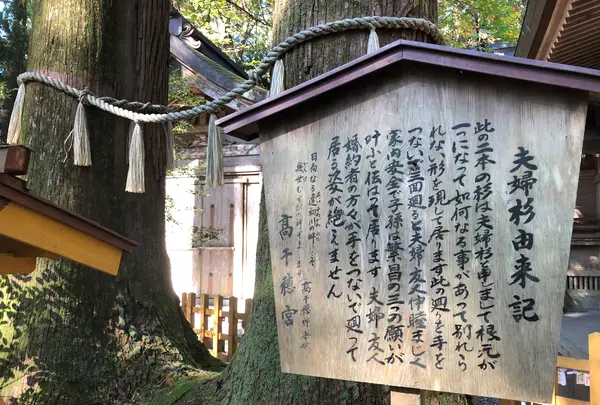 夫婦杉由来記
此の二本の杉は夫婦杉と申しまして根元が
一つになって如何なる事があって別れら
れない形を現して居ります此の廻りを手を
つないで三回廻ると夫婦友人仲睦まじく
家内安全で子孫は繁昌の三つの願いが
叶うと伝はって居ります夫婦友人
婚約者の方々が手をつないで廻って
居る姿が絶えません
高千穂宮